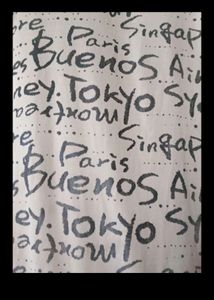 re Singap
Paris
es Buenos Ai
ney. Tokyo Sy
re Singap
Paris
es Buenos Ai
ney. Tokyo Sy